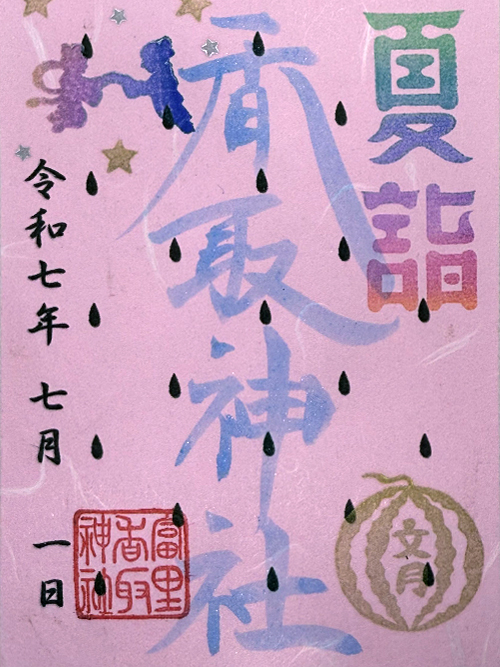 夏詣
香取神社
文月
令和七年 七月 一日
富里
香取
神社